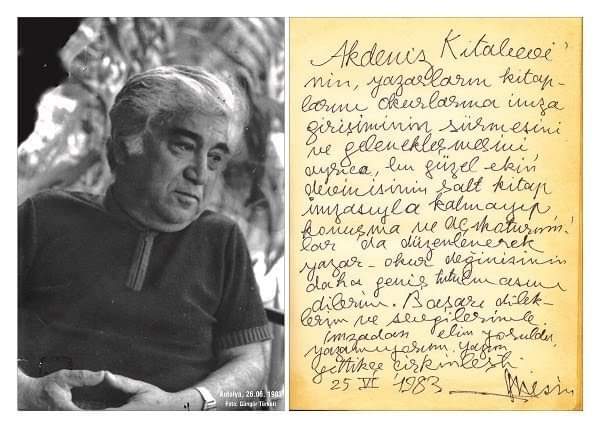 Antalya, 26.06. 1983
Foto: Güngör Türkeli
Akdeniz Kitabevi'
nin, yazarların kitap-
larını okurlarına imza
girişiminin sürmesini
ve gelenekleşmesini
ayrıca, bu güzel ekin
devinisinin salt kitap
imzasıyla kalmayıp
konuşma ve
lar da düzenlenerek
yazar-okur değinisinin
daha geniş tutulmasını
dilerim. Başarı dilek-
lerim ve sevgilerimle
imzadan elim yoruldu,
yazamıyorum, yazım
gittikçe çirkinleşti
25 VI 1983 Nesin